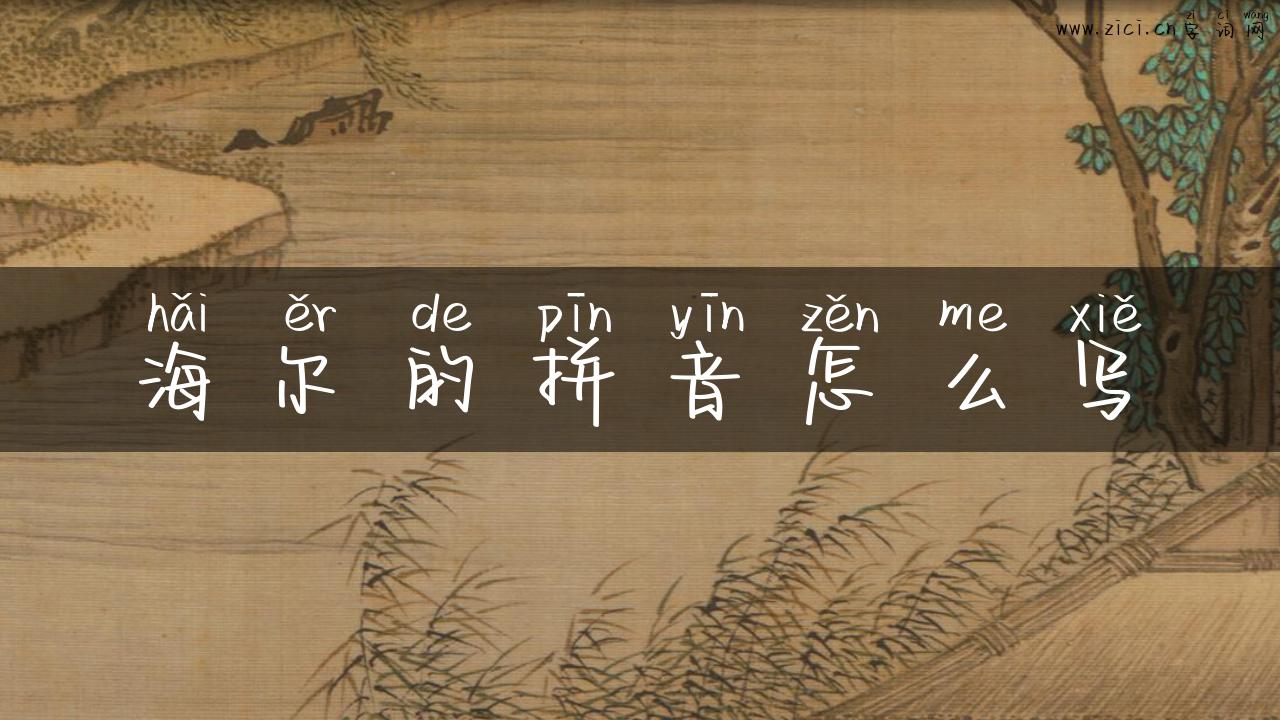 zì cí wǎng
www.zici.cn 字词网
hǎi ěr de pīn yīn zěn me xiě
海尔的拼音怎么写